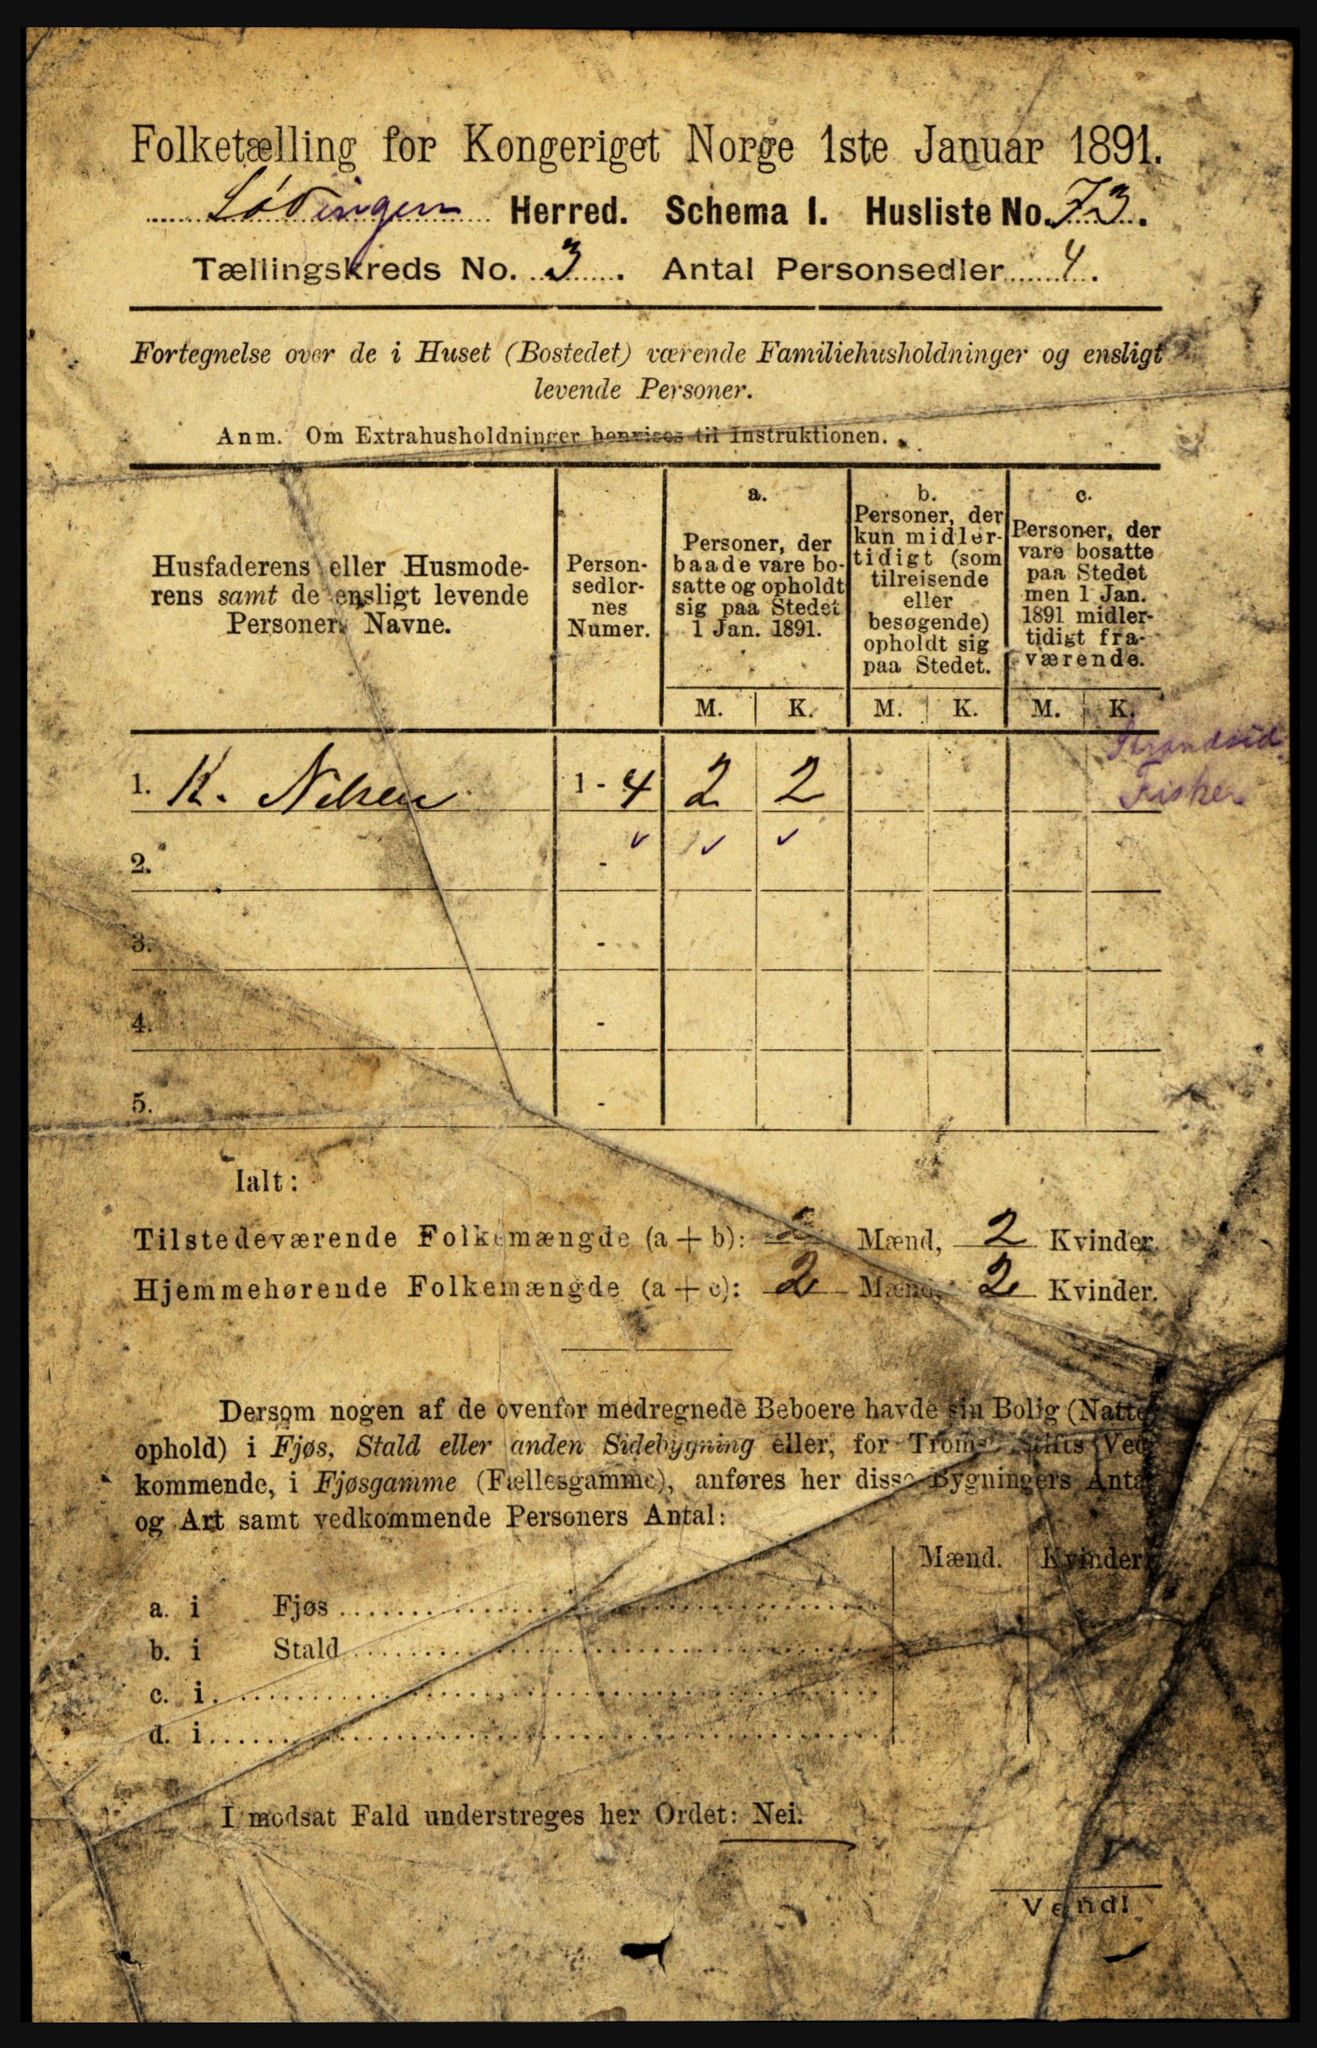 Folketælling for Kongeriget Norge 1ste Januar 1891.
Lødingen Herred. Schema I. Husliste No. 73.
Tællingskreds No. 3. Antal Personsedler 4.
Fortegnelse over de i Huset (Bostedet) værende Familiehusholdninger og ensligt
levende Personer.
Anm. Om Extrahusholdninger henvises til Instruktionen.
Husfaderens eller Husmode-
rens samt de ensligt levende
Personers Navne.
Person-
sedler-
nes
Numer.
a.
Personer, der
baade vare bo-
satte og opholdt
sig paa Stedet
1 Jan. 1891.
b.
Personer, der
kun midler-
tidigt (som
tilreisende
eller
besøgende)
opholdt sig
paa Stedet.
c.
Personer, der
vare bosatte
paa Stedet
men 1 Jan.
1891 midler-
tidigt fra-
værende.
M. K. M. K. M. K.
1. K. Nilsen 1 - 4 2 2
Strandsid.
Fisker
2. -
3. -
4. -
5. -
Ialt:
Tilstedeværende Folkemængde (a + b): 2 Mænd, 2 Kvinder.
Hjemmehørende Folkemængde (a + c): 2 Mænd, 2 Kvinder.
Dersom nogen af de ovenfor medregnede Beboere havde sin Bolig (Natte-
ophold) i Fjøs, Stald eller anden Sidebygning eller, for Tromsø Stifts Ved-
kommende, i Fjøsgamme (Fællesgamme), anføres her disse Bygningers Antal
og Art samt vedkommende Personers Antal:
Mænd. Kvinder.
a. i Fjøs
b. i Stald
c. i
d. i
I modsat Fald understreges her Ordet: Nei.
Vend!